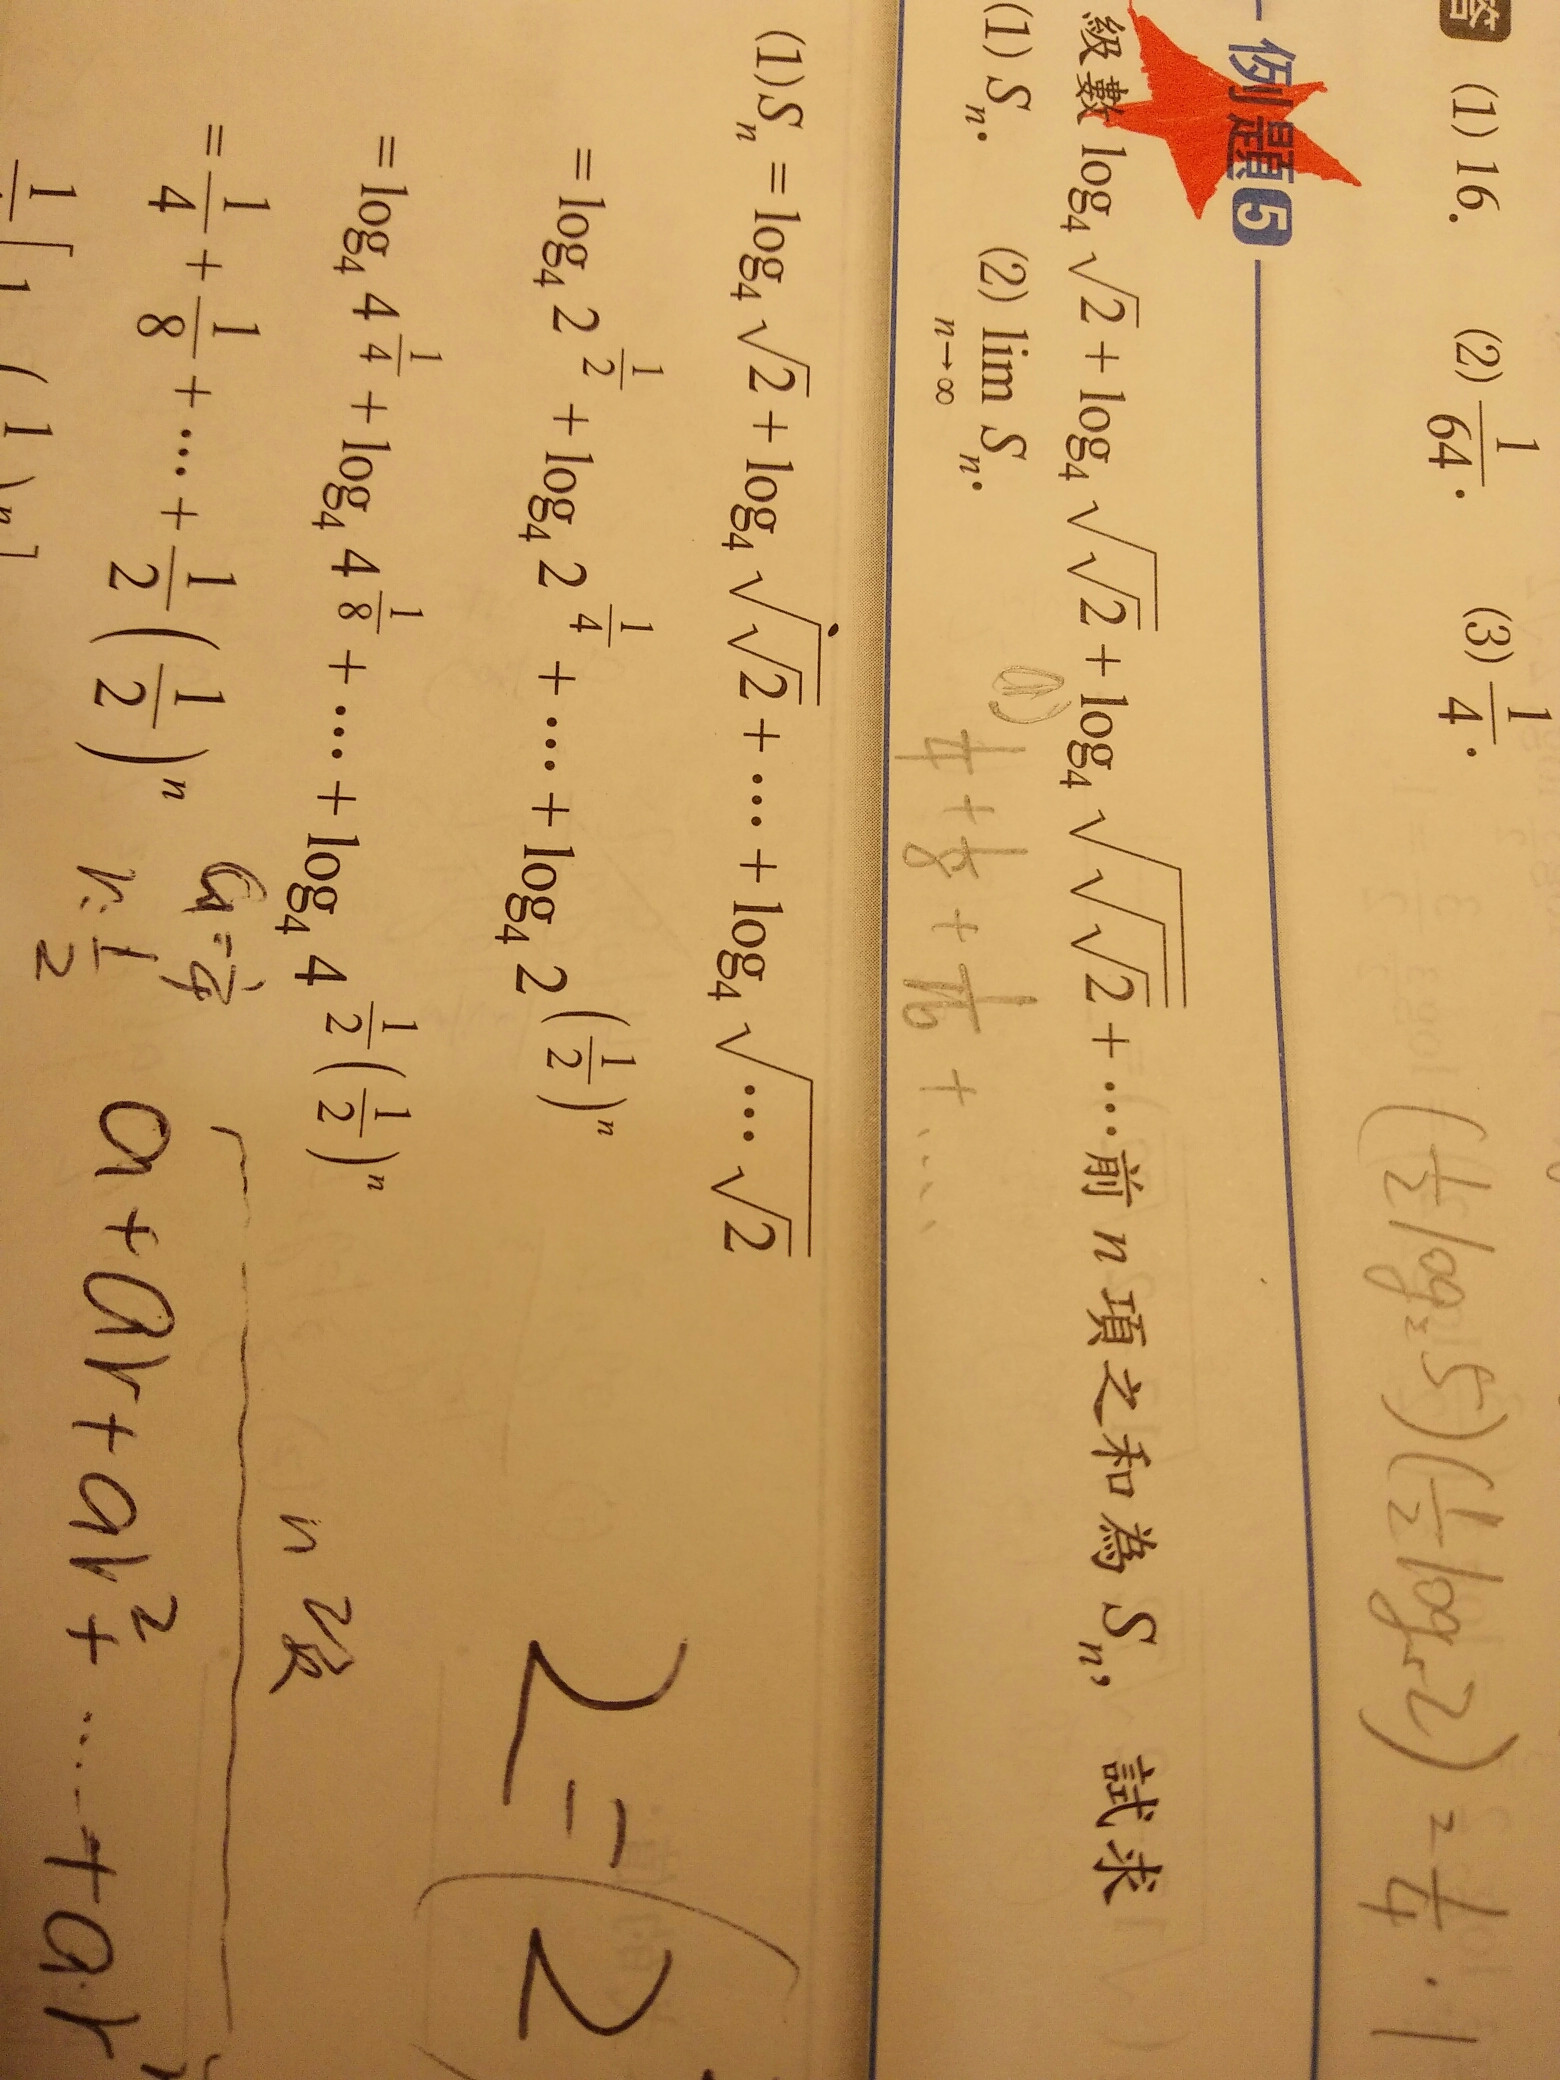 答 (1) 16. (2) 1/64. (3) 1/4.
(1/2 log₂5)(1/2 log₅2) = 1/4 · 1
例題5
級數 log₄√2 + log₄√√2 + log₄√√√2 + …前 n 項之和為 Sₙ, 試求
(1) Sₙ. (2) lim_{n→∞} Sₙ.
(1) 1/4 + 1/8 + 1/16 + ……
(1)Sₙ = log₄√2 + log₄√√2 + … + log₄√…√2
= log₄2^(1/2) + log₄2^(1/4) + … + log₄2^(1/2)ⁿ
2 = (2
= log₄4^(1/4) + log₄4^(1/8) + … + log₄4^(1/2(1/2)ⁿ)
n 項
= 1/4 + 1/8 + … + 1/2(1/2)ⁿ
a = 1/4
r: 1/2
a + ar + ar² + …… + a·r